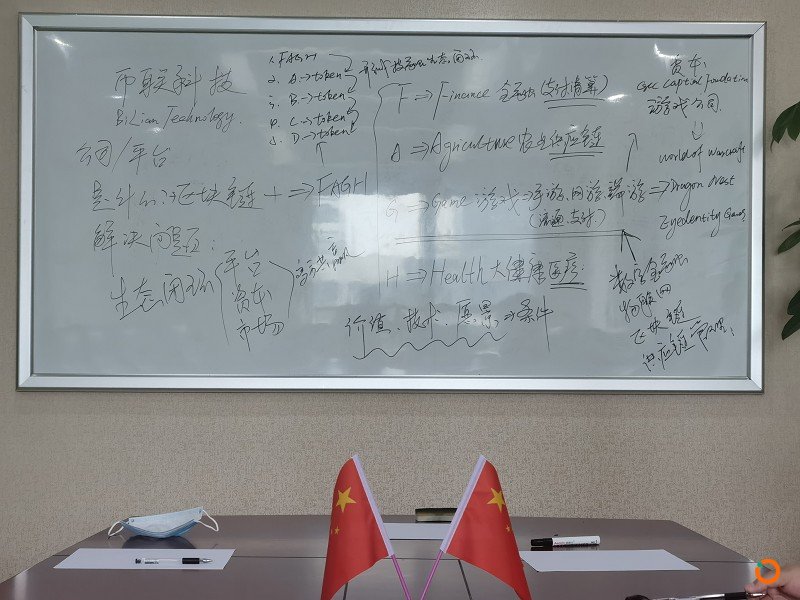 币联科技
BiLian Technology.
公司/平台
是什么: 区块链 + => FAGH
解决问题:
生态闭环
平台
资本
市场
1. FAGH
2. A->token
3. B->token
4. C->token
5. D->token
生态闭环
F => Finance 金融(支付清算)
A => Agriculture 农业供应链
G => Game 游戏 => 手游、网游、端游 =>
(流通支付)
H => Health 大健康 医疗:
价值、技术、愿景 => 条件
资本:
Capital Foundation
游戏公司
world of warcraft
Dragon Nest
Eyedentity Games
数字金融
物联网
区块链
供应链管理: